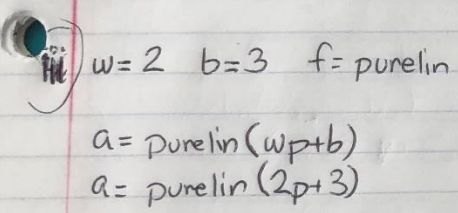 w=2 b=3 f= purelin
a= purelin(wp+b)
a= purelin(2p+3)